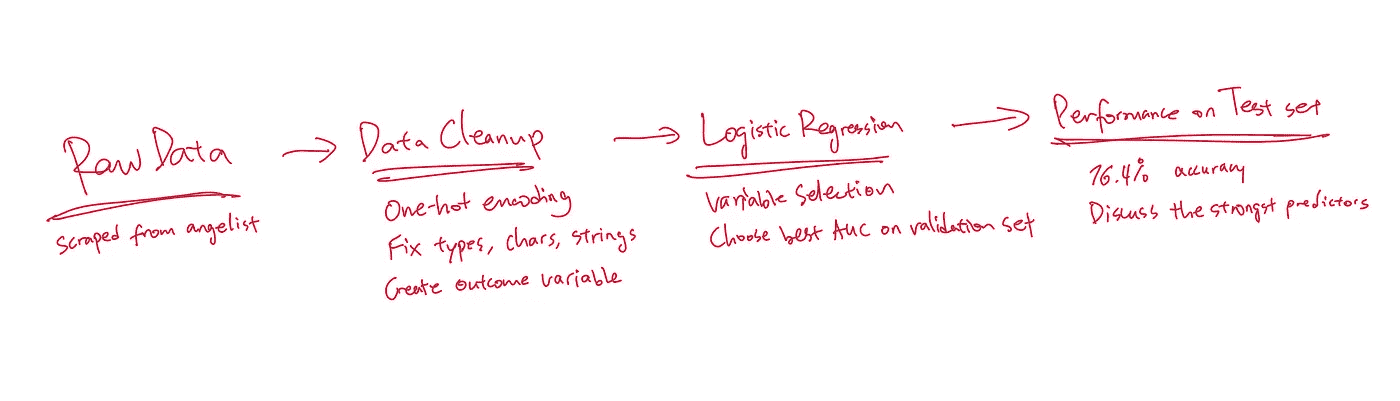 Raw Data
scraped from angelist
Data Cleanup
One-hot encoding
Fix types, chars, strings
Create outcome variable
Logistic Regression
Variable Selection
Choose best AUC on validation set
Performance on Test set
76.4% accuracy
Discuss the strongst predictors